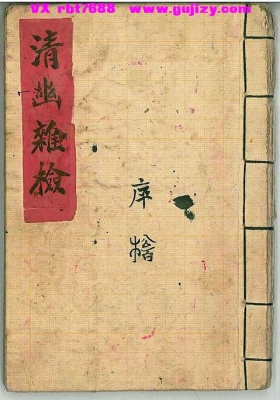 VX rbt7688 www.gujizy.com
清幽雜檢
序